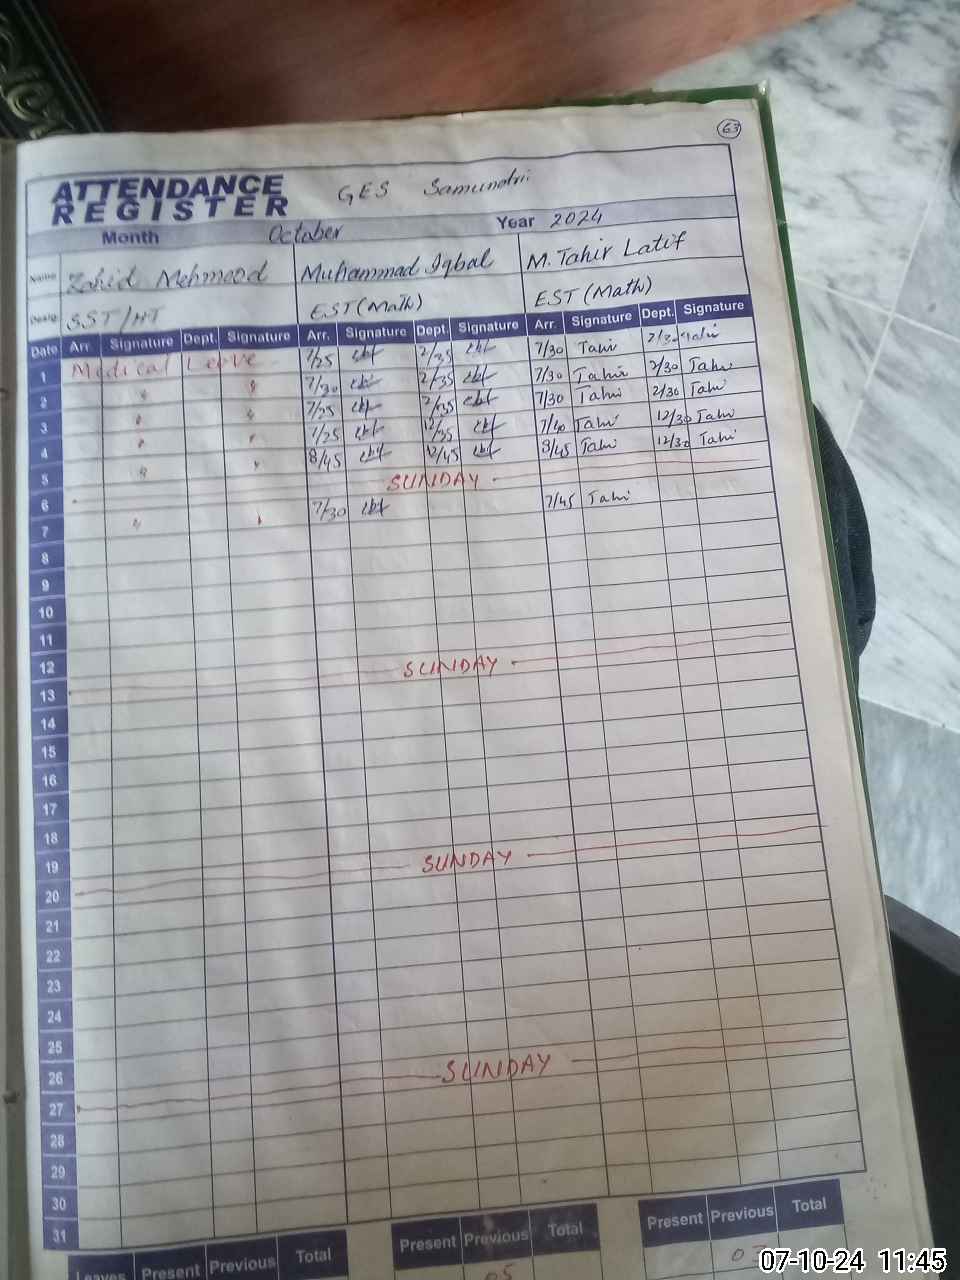 63
ATTENDANCE REGISTER GES Samundri
Month October Year 2024
Name Zahid Mehmood Muhammad Iqbal M. Tahir Latif
Desig: SST/HT EST (Math) EST (Math)
Date Arr. Signature Dept. Signature Arr. Signature Dept. Signature Arr. Signature Dept. Signature
1 Medical Leave 7/25 2/35 7/30 Tahir 2/30 Tahir
2 " " 7/30 2/35 7/30 Tahir 2/30 Tahir
3 " " 7/25 2/35 7/30 Tahir 2/30 Tahir
4 " " 7/25 12/35 7/40 Tahir 12/30 Tahir
5 " " 8/45 12/45 8/45 Tahir 12/30 Tahir
6 SUNDAY
7 " " 7/30 7/45 Tahir
8
9
10
11
12
13 SUNDAY
14
15
16
17
18
19
20 SUNDAY
21
22
23
24
25
26
27 SUNDAY
28
29
30
31
Leaves Present Previous Total Present Previous Total Present Previous Total
05
07-10-24 11:45